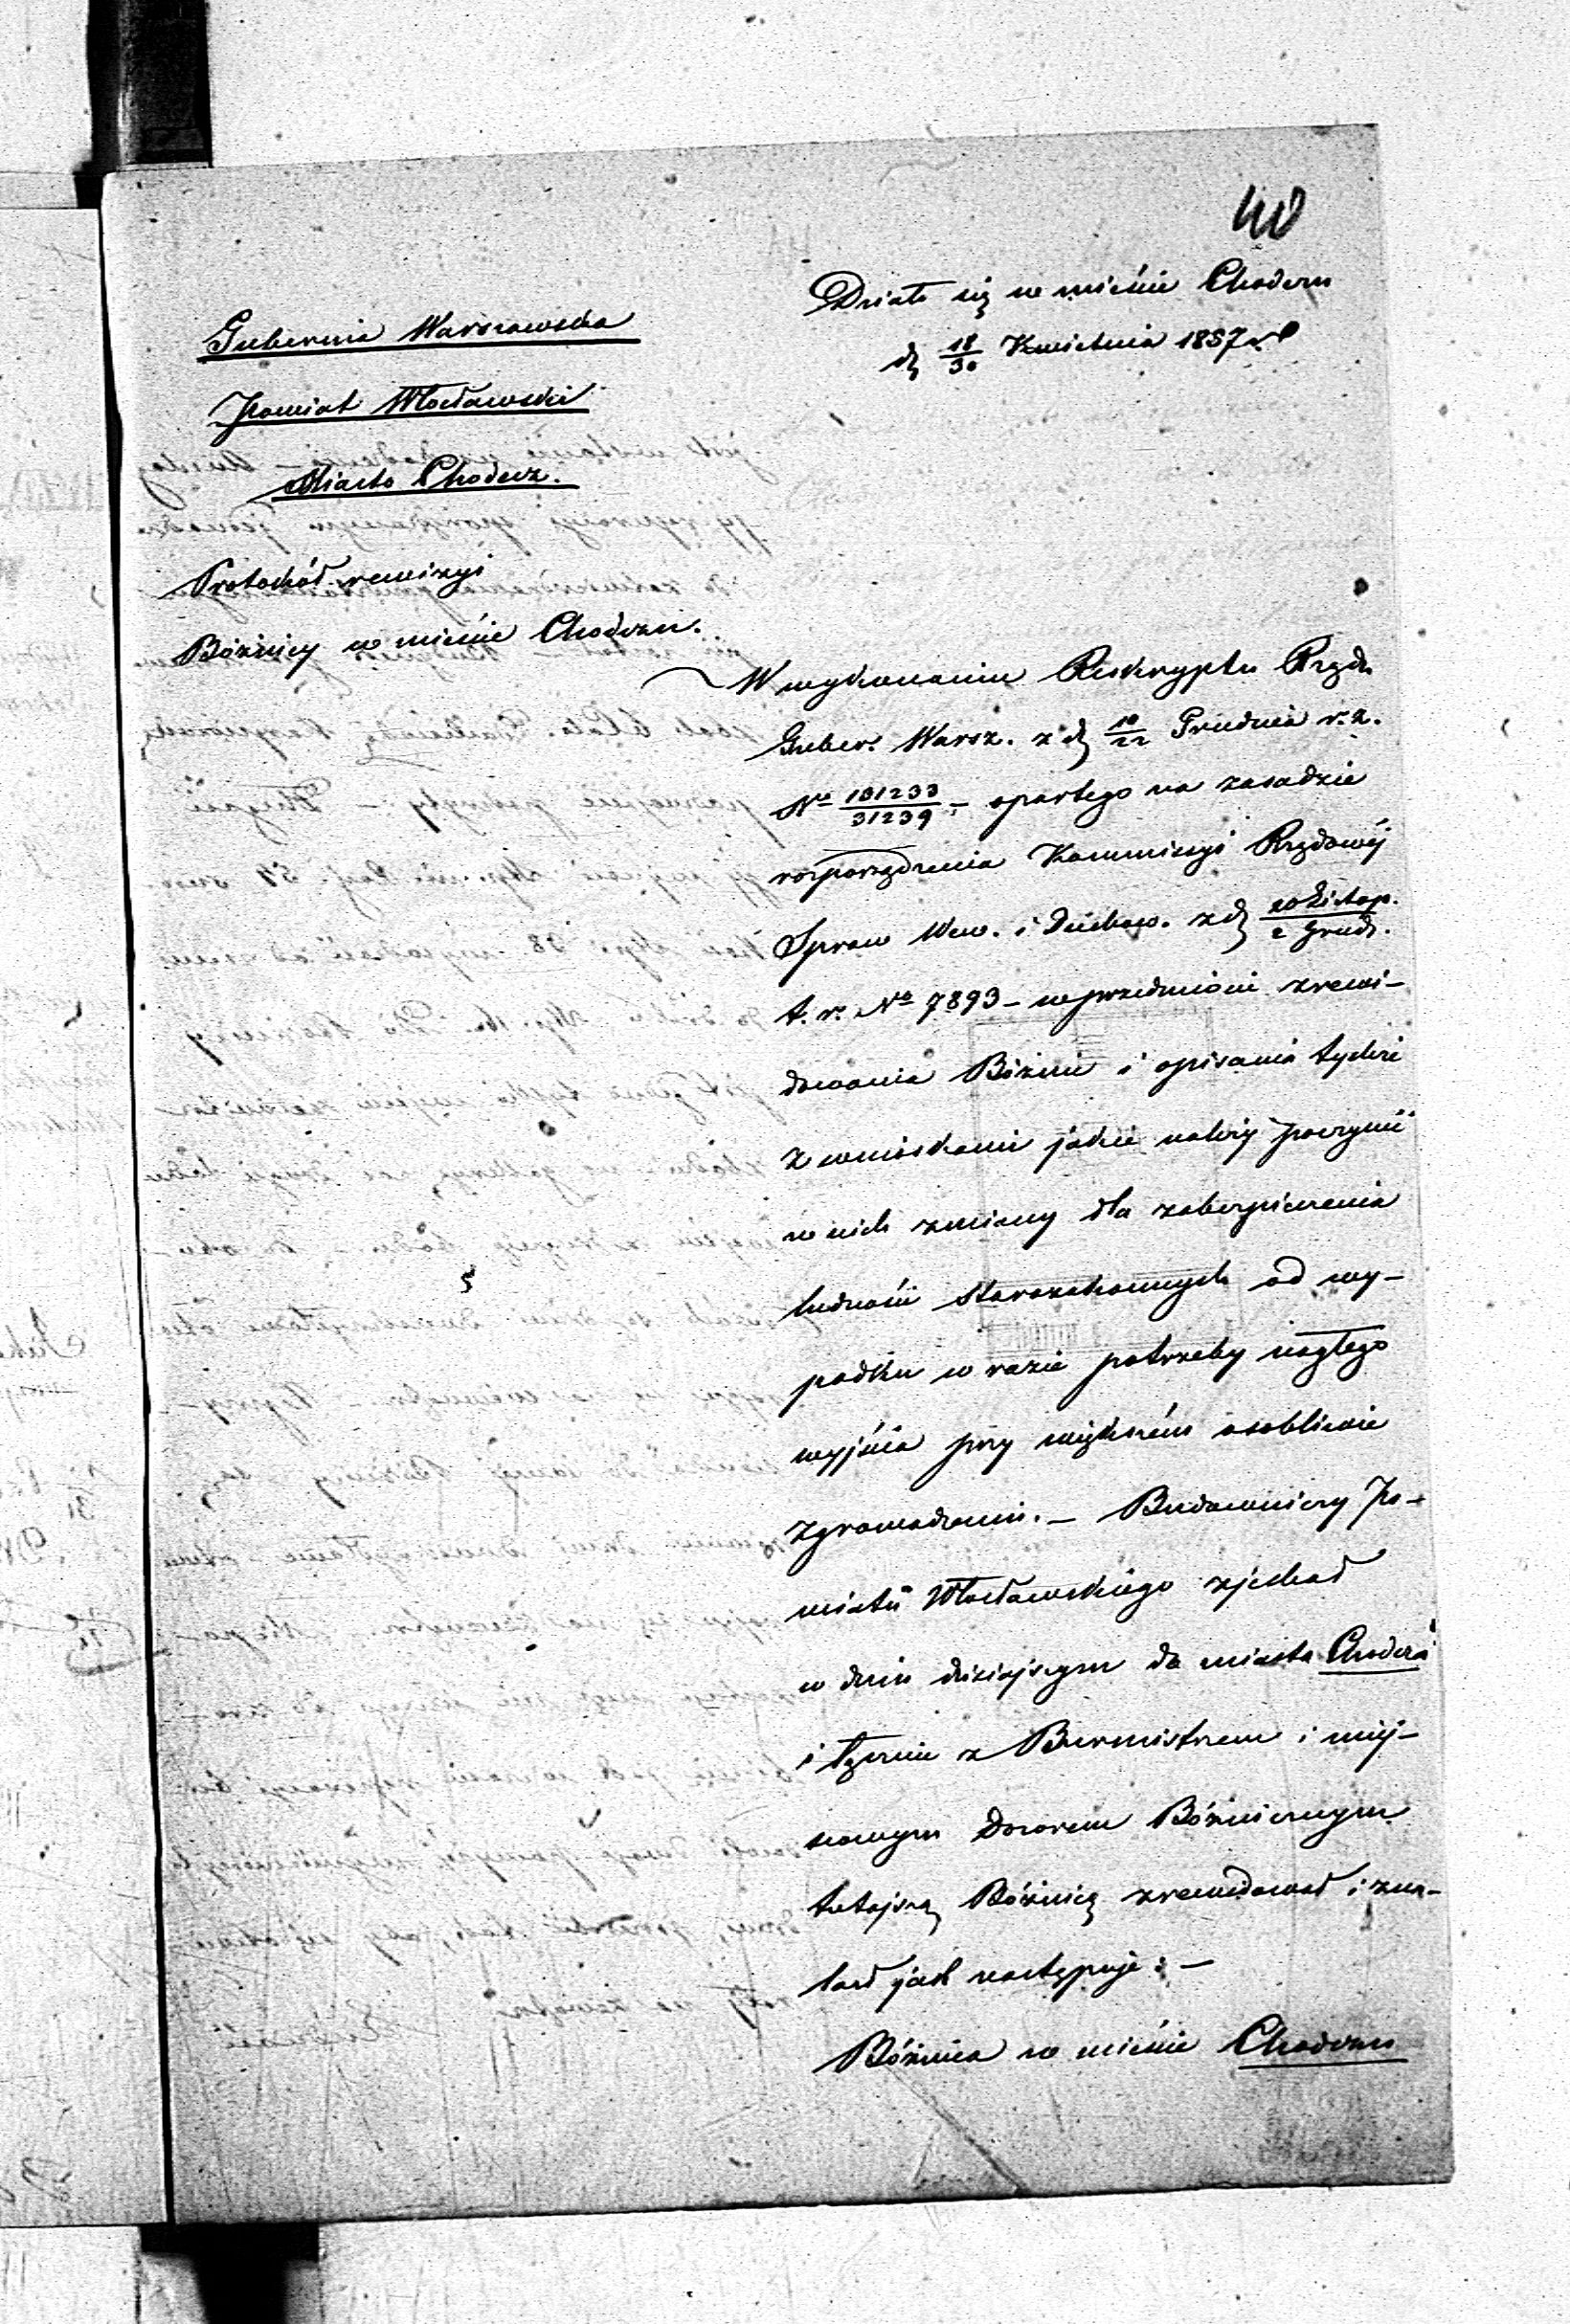 40
Działo się w mieście Chodczu
d. 18/30 Kwietnia 1857 r.
Gubernia Warszawska
Powiat Włocławski
Miasto Chodecz.
Protokół rewizyi
Bóżnicy w mieście Chodczu.
W wykonaniu Reskryptu Rządu
Guber. Warsz. z d. 10/22 Grudnia r. z.
No 101233/31239 – opartego na zasadzie
rozporządzenia Kommissyi Rządowéj
Spraw Wew. i Duchow. z d. 20 Listop./2 Grud.
t. r. No 7893 – w przedmiocie zrewi-
dowania Bóżnic i opisania tychże
z wnioskami jakie należy poczynić
w nich zmiany dla zabezpieczenia
ludności Starozakonnych od wy-
padku w razie potrzeby nagłego
wyjścia przy większém osobliwie
zgromadzeniu. – Budowniczy Po-
wiatu Włocławskiego zjechał
w dniu dzisiejszym do miasta Chodcza
i łącznie z Burmistrzem i miej-
scowym Dozorem Bóżniczym
tutejszą Bóżnicę zrewidował i zna-
lazł jak następuje: –
Bóżnica w mieście Chodczu